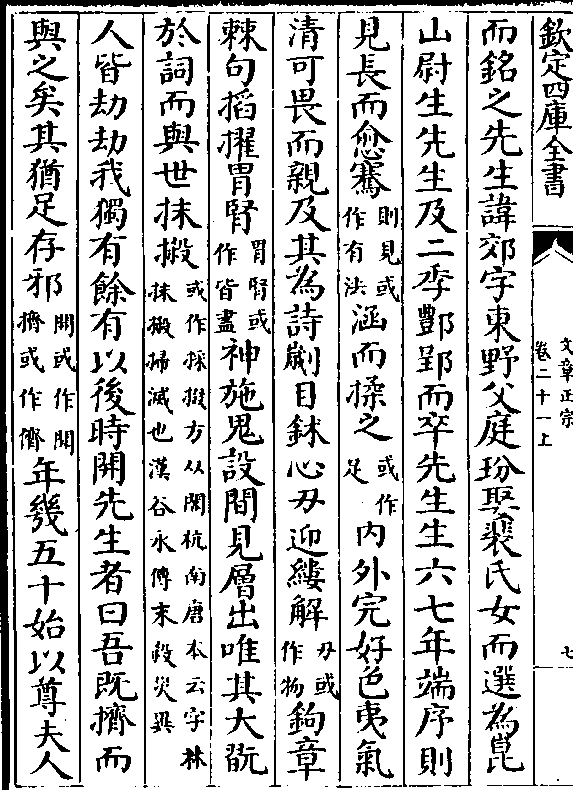 欽定四庫全書
文章正宗
卷二十一上
七
而銘之先生諱郊字東野父庭玢娶裴氏女而選為崑
山尉生先生及二季酆郢而卒先生生六七年端序則
見長而愈騫則見或作有法涵而揉之或作足內外完好色夷氣
清可畏而親及其為詩劌目鉥心刃迎縷解刃或作物鉤章
棘句搯擢胃腎胃腎或作皆盡神施鬼設間見層出唯其大翫
於詞而與世抹摋或作採掇方从閣杭南唐本云字林抹摋掃滅也漢谷永傳末殺災異
人皆劫劫我獨有餘有以後時開先生者曰吾既擠而
與之矣其猶足存邪開或作擠或作儕年幾五十始以尊夫人